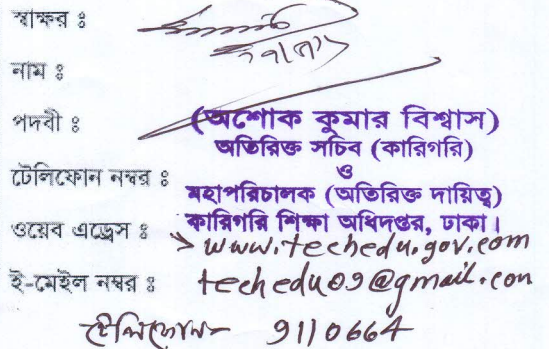 স্বাক্ষর ঃ
নাম ঃ
পদবী ঃ
(অশোক কুমার বিশ্বাস)
অতিরিক্ত সচিব (কারিগরি)
ও
টেলিফোন নম্বর ঃ
মহাপরিচালক (অতিরিক্ত দায়িত্ব)
কারিগরি শিক্ষা অধিদপ্তর, ঢাকা।
ওয়েব এড্রেস ঃ
www.techedu.gov.com
ই-মেইল নম্বর ঃ techedu09@gmail.con
টেলিফোন- 9110664